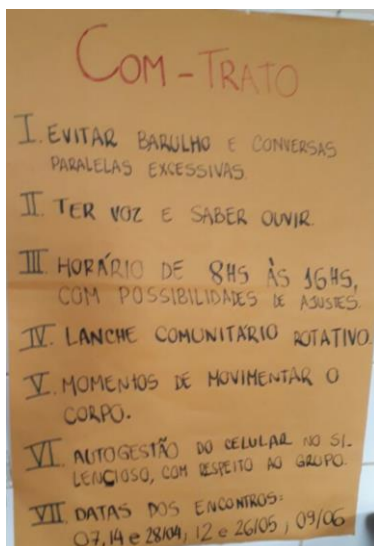 COM-TRATO
I. EVITAR BARULHO E CONVERSAS
PARALELAS EXCESSIVAS.
II. TER VOZ E SABER OUVIR.
III. HORÁRIO DE 8HS ÀS 16HS,
COM POSSIBILIDADES DE AJUSTES.
IV. LANCHE COMUNITÁRIO ROTATIVO.
V. MOMENTOS DE MOVIMENTAR O
CORPO.
VI. AUTOGESTÃO DO CELULAR NO SI-
LENCIOSO, COM RESPEITO AO GRUPO.
VII. DATAS DOS ENCONTROS:
07,14 e 28/04; 12 e 26/05; 09/06